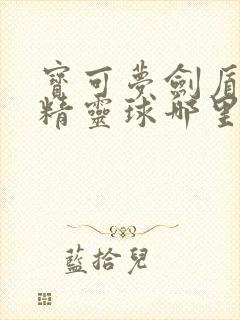 寶可夢劍盾
精靈球哪里
藍拾兒